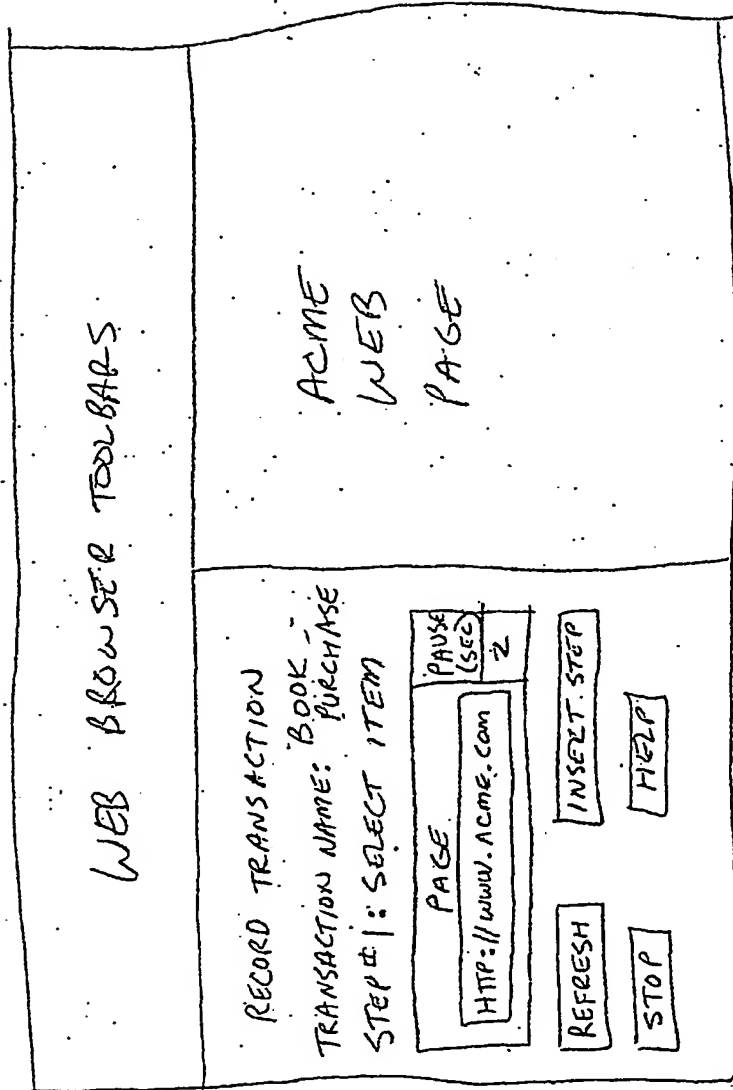 WEB BROWSER TOOLBARS
RECORD TRANSACTION
TRANSACTION NAME: BOOK-
PURCHASE
STEP#1: SELECT ITEM
PAGE
PAUSE
(SEC)
HTTP://WWW.ACME.COM
2
REFRESH
INSERT STEP
STOP
HELP
ACME
WEB
PAGE